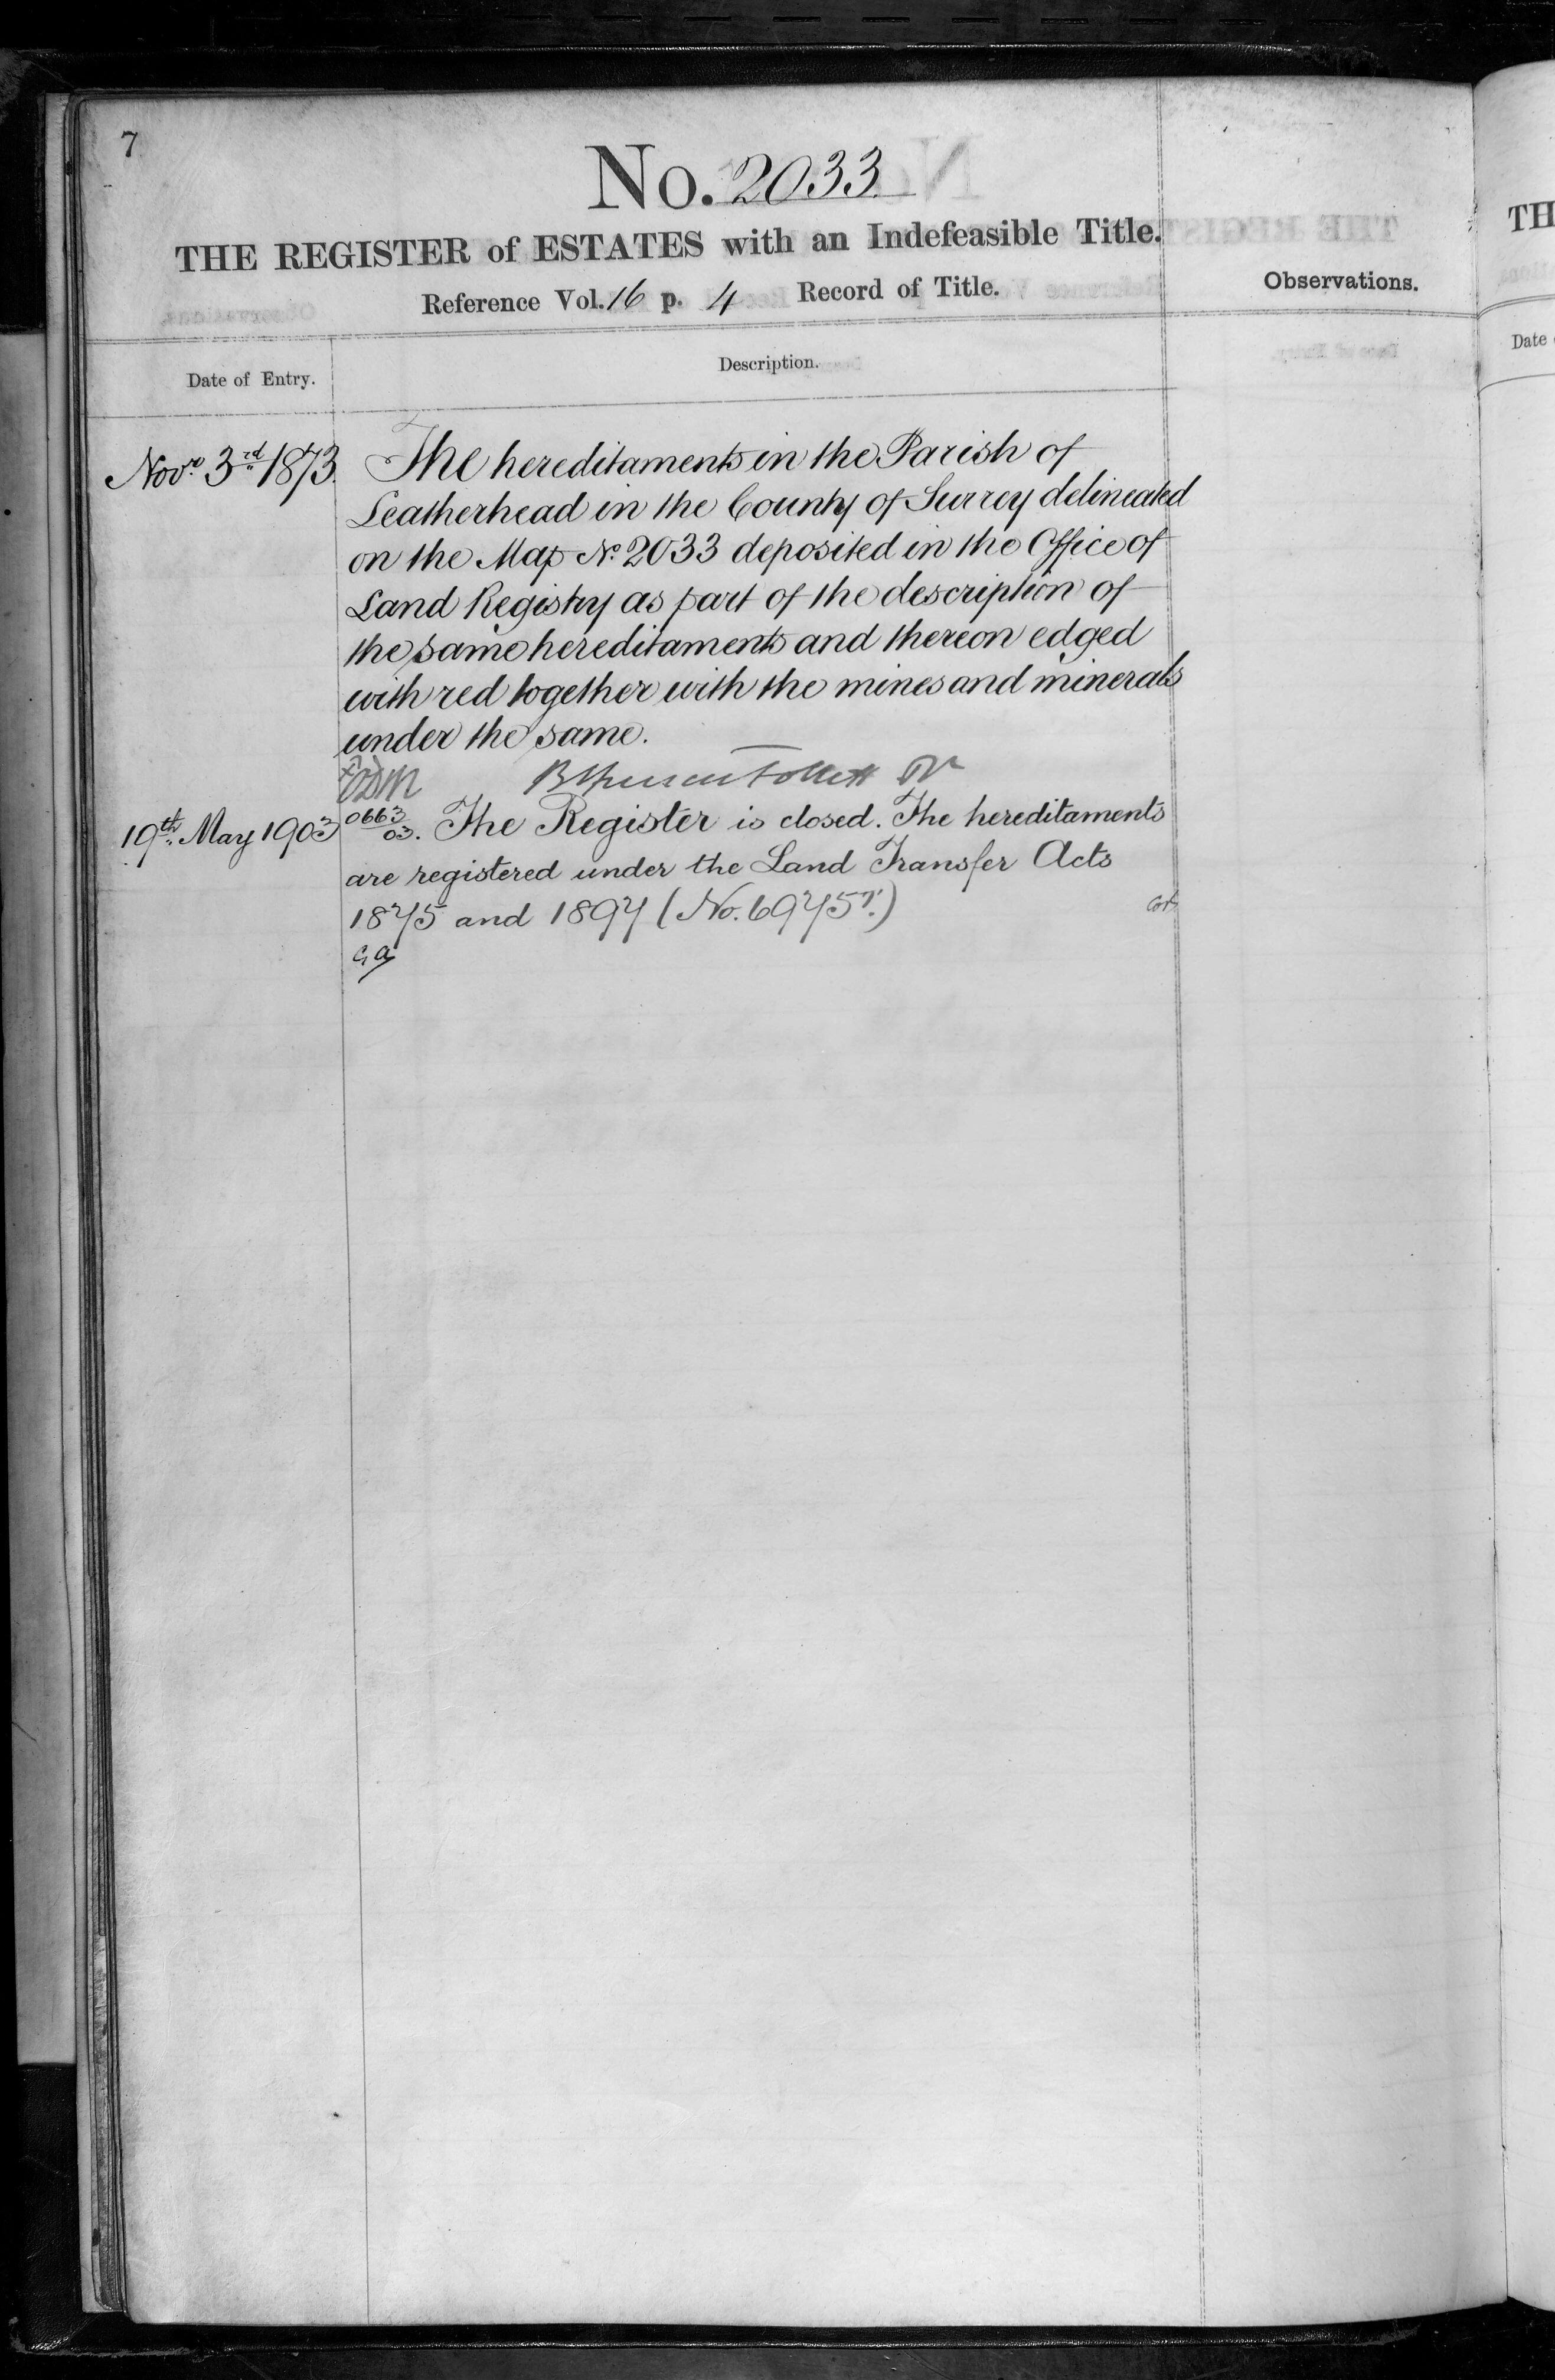 7
No. 2033
THE REGISTER of ESTATES with an Indefeasible Title.
Reference Vol. 16 p. 4 Record of Title.
Observations.
Date of Entry.
Description.
Novr. 3rd 1873. The hereditaments in the Parish of
Leatherhead in the County of Surrey delineated
on the Map No. 2033 deposited in the Office of
Land Registry as part of the description of
the same hereditaments and thereon edged
with red together with the mines and minerals
under the same.
Follett
19th May 1903 0663/03. The Register is closed. The hereditaments
are registered under the Land Transfer Acts
1875 and 1897 (No. 6975 T.)
TH
Date